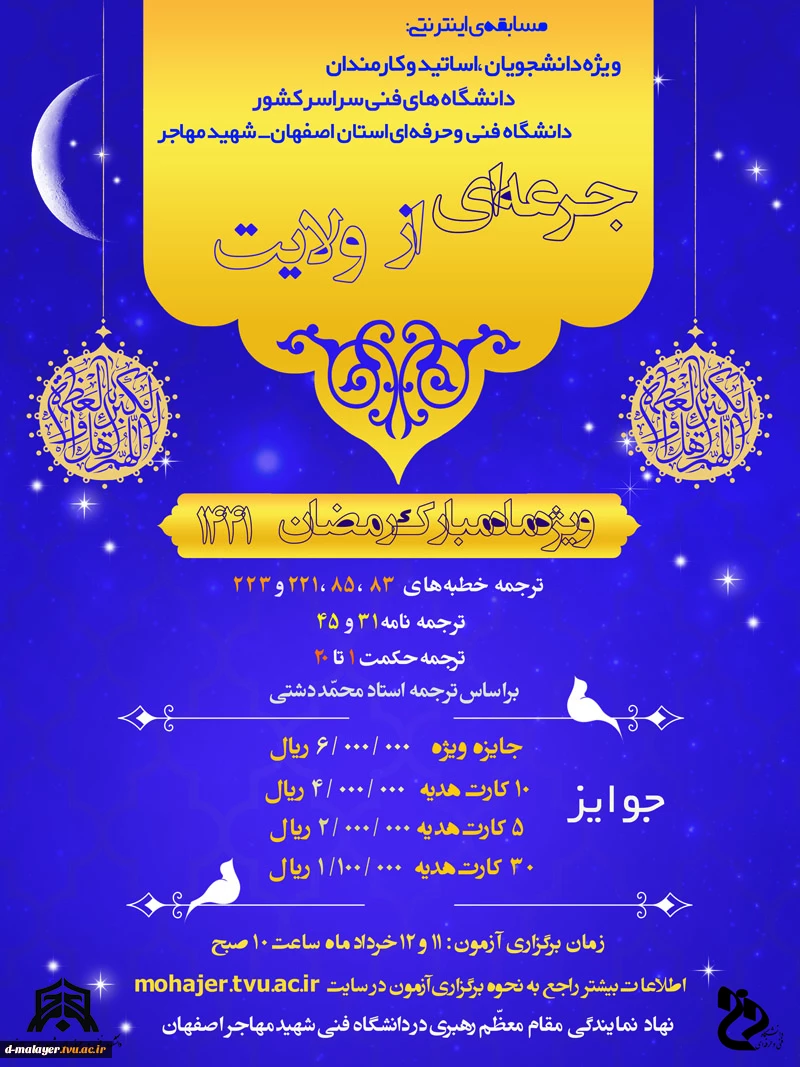 مسابقه‌ی اینترنتی:
ویژه دانشجویان، اساتید و کارمندان
دانشگاه های فنی سراسر کشور
دانشگاه فنی وحرفه ای استان اصفهان_ شهید مهاجر
جرعه‌ای از ولایت
اللهم اهل الکبریاء والعظمة
اللهم اهل الکبریاء والعظمة
ویژه ماه مبارک رمضان ۱۴۴۱
ترجمه خطبه های ۸۳ ، ۸۵ ، ۲۲۱ و ۲۲۳
ترجمه نامه ۳۱ و ۴۵
ترجمه حکمت ۱ تا ۲۰
براساس ترجمه استاد محمّد دشتی
جوایز
جایزه ویژه ۶/۰۰۰/۰۰۰ ریال
۱۰ کارت هدیه ۴/۰۰۰/۰۰۰ ریال
۵ کارت هدیه ۲/۰۰۰/۰۰۰ ریال
۳۰ کارت هدیه ۱/۱۰۰/۰۰۰ ریال
زمان برگزاری آزمون : ۱۱ و ۱۲ خرداد ماه ساعت ۱۰ صبح
اطلاعات بیشتر راجع به نحوه برگزاری آزمون در سایت mohajer.tvu.ac.ir
نهاد نمایندگی مقام معظّم رهبری در دانشگاه فنی شهید مهاجر اصفهان
دانشگاه
فنی و حرفه‌ای
d-malayer.tvu.ac.ir